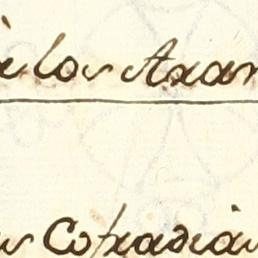 los Aran
Cofradias